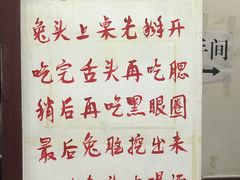 兔头上桌先掰开
吃完舌头再吃腮
稍后再吃黑眼圈
最后兔脑挖出来
车间